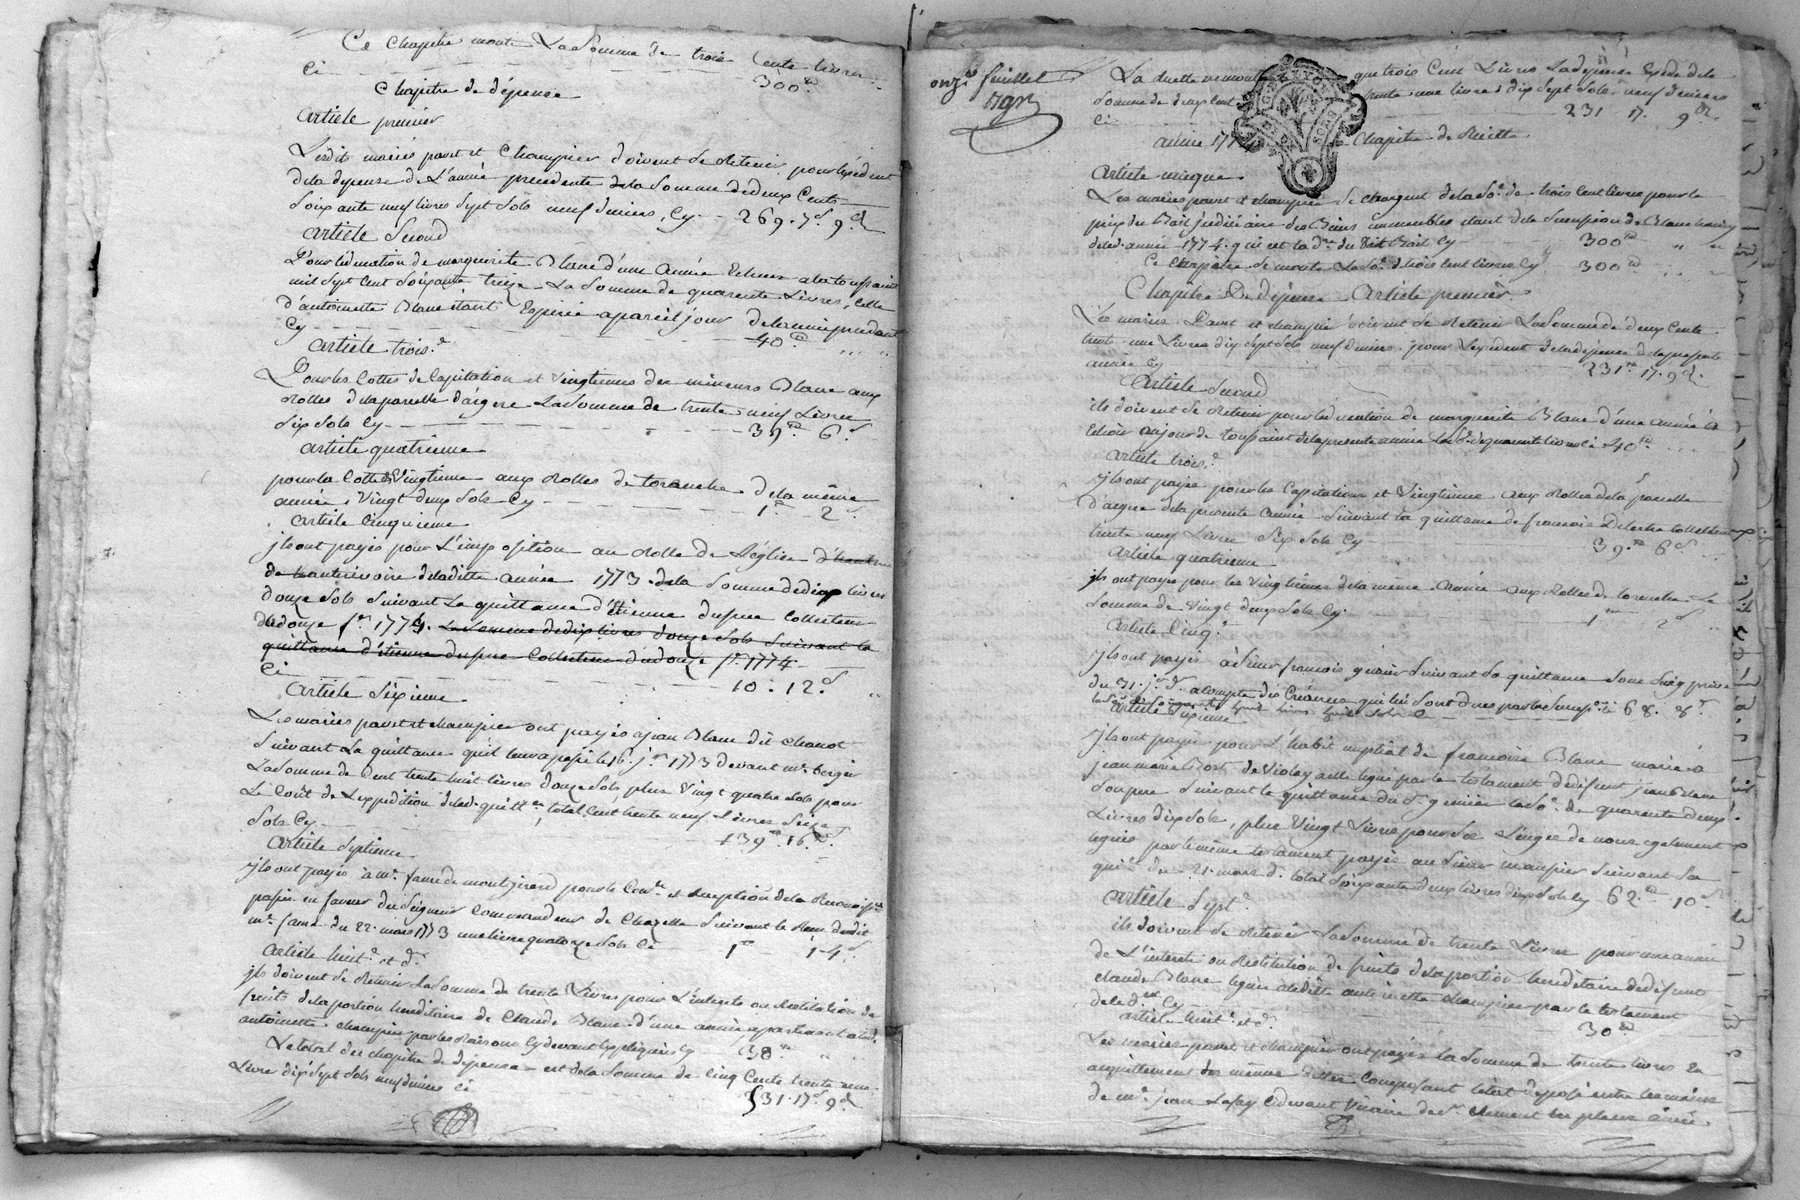 Ce chapitre monte La Somme de trois Cents livres
Ci 300
Chapitre de dépense
article premier
Lesdits mariés pavet et Champier doivent se Retenir pour lexédent
dela depense de L'année precedente dela Somme de deux Cents
Soixante neuf livres Sept Sols neuf deniers, Cy 269. 7s 9d
article Second
Pour léducation de marguerite Blanc d'une année Echue a la toussaint
mil Sept Cent Soixante treize La Somme de quarente Livres, Celle
d'antoinette Blanc étant Expirée a pareil jour de lannée precedente
Cy 40
article trois.e
Pour les Cottes de Capitation et vingtiemes des mineurs Blanc aux
Rolles de la parcelle d'aigne La Somme de trente neuf Livres
Six Sols Cy 39. 6s
article quatrieme
pour la Cotte de Vingtieme aux Rolles de toranche de la même
année, Vingt deux Sols Cy 1. 2
article Cinquieme
jls ont payés pour L'imposition au Rolle de Léglise
de la ditte année 1773. de la Somme de dix livres
douze Sols Suivant La quittance d'étienne dupuy Collecteur
du douze fr. 1774. La Somme de dix livres douze Sols Suivant la
quittance d'étienne dupuy Collecteur du douze fr. 1774
Ci 10. 12s
article Sixieme
Les mariés pavet et champier ont payés a jean Blanc dit Chanot
Suivant La quittance qu'il leur a passé le 16. jr 1773 devant me. berger
La Somme de Cent trente huit livres douze Sols plus Vingt quatre Sols pour
Le Coût de L'expedition de lad. quitt.ce total Cent trente neuf Livres Seize
Sols Cy 139 16s
article Septieme
jls ont payés a me. faure de montgirard pour le Con.le et Reception de la Reconoiss.ce
passée en faveur du Seigneur Commandeur de Chazelle Suivant le Reçu dudit
me. faure du 22. mars 1773 une livre quatorze Sols Ci 1 14s
article huit.e et d.er
jls doivent se Retenir La Somme de trente Livres pour L'interete ou Restitution de
fruits de la portion hereditaire de Claude Blanc d'une année appartenant a lad.
antoinette champier par les Raisons Cy devant Expliquées Cy 30
Le total du chapitre de depense est de la Somme de Cinq Cents trente une
Livre dix Sept Sols neuf deniers Ci 531. 17s 9d
onz.e feuillet
La Recette ne montant que trois Cent Livres La dépense Exède de la
Somme de deux Cent trente une livres dix Sept Sols neuf deniers
Ci 231 17. 9d.
année 1774 Chapitre de Recette
article unique
Les mariés pavet et champier Se chargent de la So.e de trois Cent livres pour le
prix du Bail judiciaire des Biens immeubles étant de la Succession de Blanc
de lad. année 1774. qui est la d.re du dit Bail Cy 300
Ce chapitre Se monte La So.e de trois Cent livres Cy 300
Chapitre De dépense Article premier
Les mariés Pavet et champier doivent se Retenir La Somme de deux Cents
trente une Livres dix Sept Sols neuf deniers pour Lexcedent de la dépense de la precedente
année Cy 231 17. 9d.
article Second
ils doivent se Retenir pour léducation de marguerite Blanc d'une année
Echue au jour de toussaint de la presente année La So.e de quarente livres Ci 40
article trois.e
jls ont payés pour les Capitation et Vingtieme aux Rolles de la parcelle
D'aigne de la presente année Suivant la quittance de francois Collecteur
trente neuf Livres Six Sols Cy 39. 6s
article quatrieme
jls ont payés pour les Vingtiemes de la même année aux Rolles de toranche La
Somme de Vingt deux Sols Cy. 1 2s
article Cinq.e
jls ont payés à Sieur francois Suivant Sa quittance Sous Seing privé
du 31. a compte des Créances qui lui sont dues par la Ci 68. 8s
article Sixieme
jls ont payés pour L'habit nuptial de francoise Blanc mariée à
jean marie Bost de Violay a elle legué par le testament de défunt jean Blanc
Son pere Suivant la quittance du Sr. La So.e de quarente deux
Livres dix Sols, plus Vingt Livres pour Son Linge de noces egalement
legués par le même testament payés au Sieur Suivant Sa
quit. du 21. mars d. total Soixante deux livres dix Sols Cy 62. 10s
article Sept.e
ils doivent se Retenir La Somme de trente Livres pour une année
de L'interete ou Restitution de fruits de la portion hereditaire de défunt
claude Blanc leguée a ladite antoinette champier par le testament
de lad.e Cy 30
article huit.e et d.
Les mariés pavet et champier ont payés la Somme de trente livres en
acquittement des menues dettes Composant l'état déposé entre les mains
de me. jean Lafay Cidevant Vicaire de